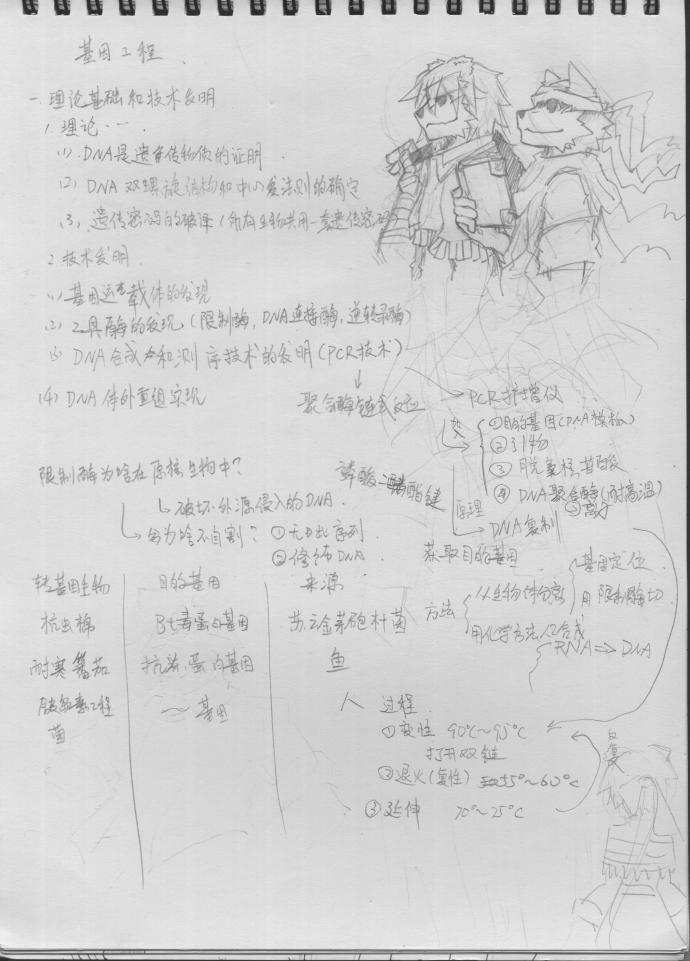 基因工程
一.理论基础和技术发明
1.理论
(1) DNA是遗传物质的证明
(2) DNA双螺旋结构和中心法则的确定
(3) 遗传密码的破译(所有生物共用一套遗传密码)
2.技术发明
(1) 基因运载体的发现
(2) 工具酶的发现(限制酶,DNA连接酶,逆转录酶)
(3) DNA合成和测序技术的发明(PCR技术)
(4) DNA体外重组实现
聚合酶链式反应
PCR扩增仪
①目的基因(DNA模板)
②引物
③脱氧核苷酸
④DNA聚合酶(耐高温)
原理
DNA复制
限制酶为啥在原核生物中?
破坏外源侵入的DNA
因为啥不自割? ①无此序列
②修饰DNA
磷酸二酯键
获取目的基因
方法
从生物体分离
基因定位
用限制酶切
用化学方法人工合成
RNA⇒DNA
转基因生物 目的基因 来源
抗虫棉 Bt毒蛋白基因 苏云金芽孢杆菌
耐寒番茄 抗冻蛋白基因 鱼
胰岛素工程菌 ~基因 人
过程
①变性 90℃~95℃
打开双链
②退火(复性) 55°~60℃
③延伸 70°~75℃